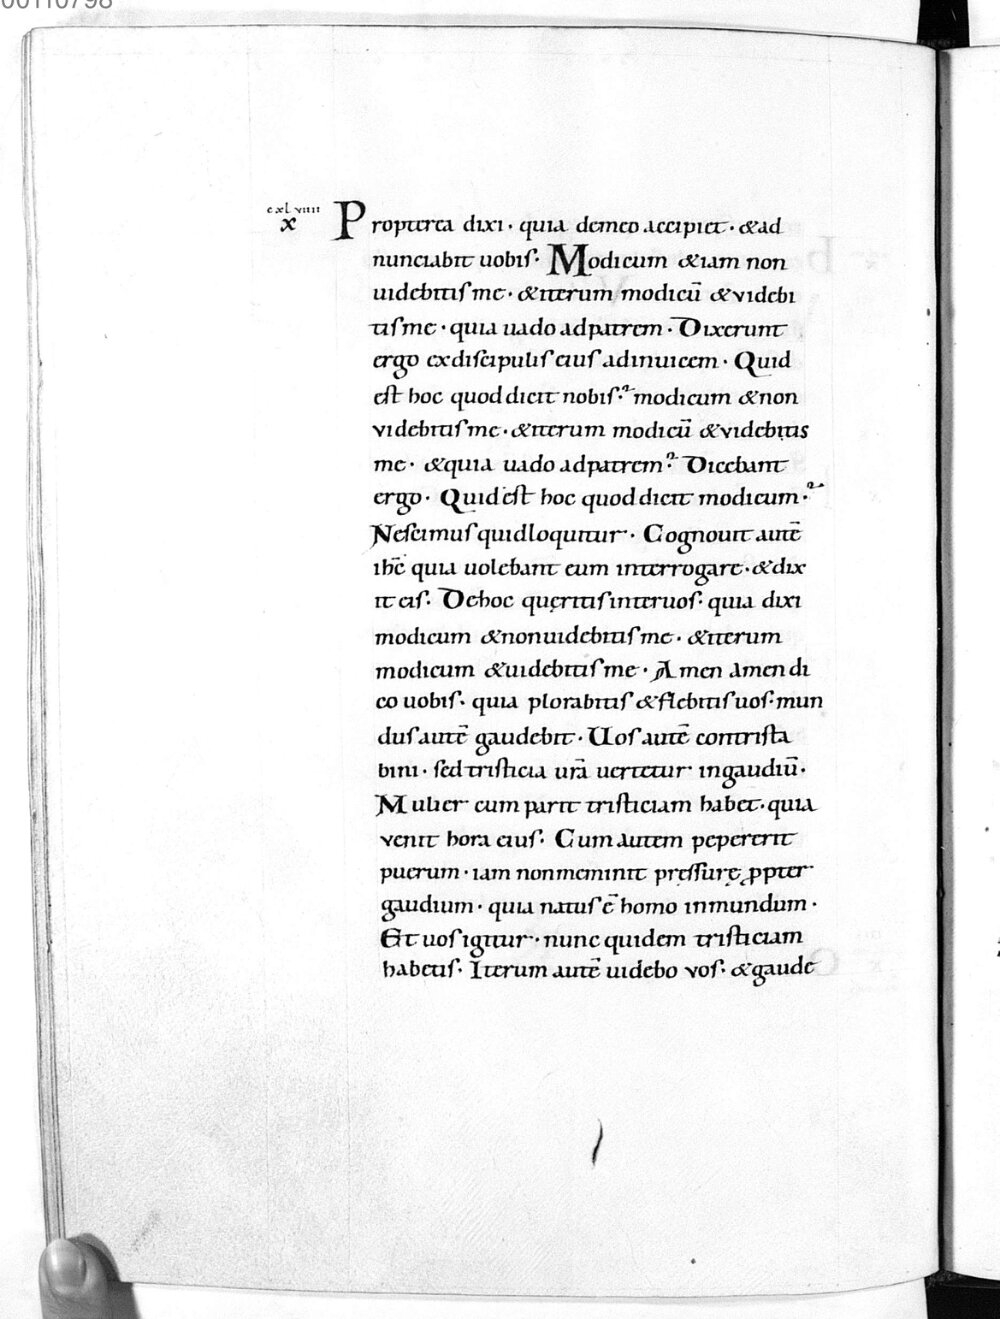 00110798
cxlviiii
x
Propterea dixi · quia demeo accipiet · &ad
nunciabit uobis · Modicum &iam non
uidebitis me · &iterum modicū &videbi
tis me · quia uado adpatrem · Dixerunt
ergo exdiscipulis eius adinuicem · Quid
est hoc quod dicit nobis · modicum &non
videbitis me · &iterum modicū &videbitis
me · &quia uado adpatrem · Dicebant
ergo · Quid est hoc quod dicit modicum ·
Nescimus quid loquitur · Cognouit autē
ihē quia uolebant eum interrogare · &dix
it eis · Dehoc queritis interuos · quia dixi
modicum &nonuidebitis me · &iterum
modicum &uidebitis me · Amen amen di
co uobis · quia plorabitis &flebitis uos · mun
dus autē gaudebit · Uos autē contrista
bini · sed tristicia urā uertetur ingaudiū ·
Mulier cum parit tristiciam habet · quia
venit hora eius · Cum autem pepererit
puerum · iam nonmeminit pressurę ꝓpter
gaudium · quia natus ē homo inmundum ·
Et uos igitur · nunc quidem tristiciam
habetis · Iterum autē uidebo vos · &gaude